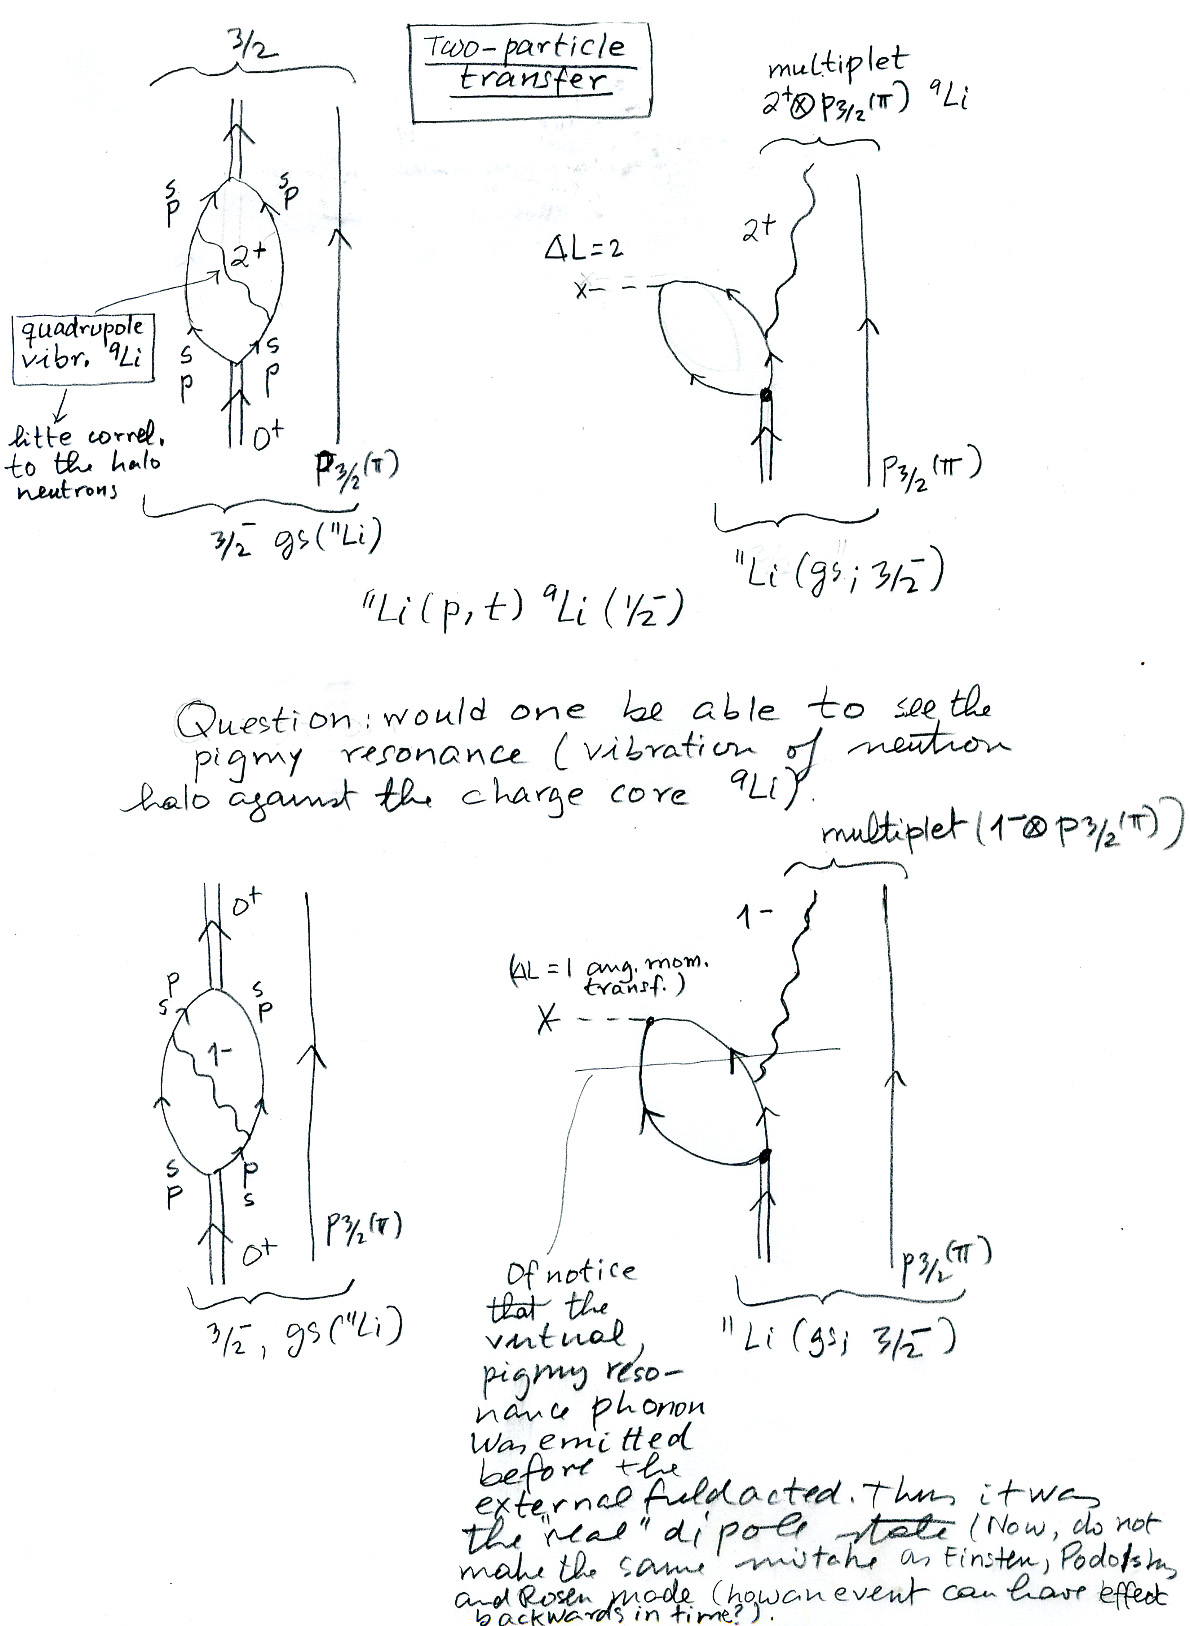 Two-particle
transfer
3/2
s
p
s
p
2+
quadrupole
vibr. ⁹Li
s
p
s
p
litte correl.
to the halo
neutrons
0+
p3/2(π)
3/2⁻ gs(¹¹Li)
multiplet
2⁺⊗p3/2(π) ⁹Li
2+
ΔL=2
x
p3/2(π)
¹¹Li(gs; 3/2⁻)
¹¹Li(p,t) ⁹Li(1/2⁻)
Question: would one be able to see the
pigmy resonance (vibration of neutron
halo against the charge core ⁹Li).
0+
p
s
s
p
1-
s
p
p
s
0+
p3/2(π)
3/2⁻, gs(¹¹Li)
multiplet(1⁻⊗p3/2(π))
1-
(ΔL=1 ang. mom.
transf.)
X
p3/2(π)
¹¹Li(gs; 3/2⁻)
Of notice
that the
virtual,
pigmy reso-
nance phonon
was emitted
before the
external field acted. Thus it was
the "real" dipole state (Now, do not
make the same mistake as Einsten, Podolsky
and Rosen made (how an event can have effect
backwards in time?).